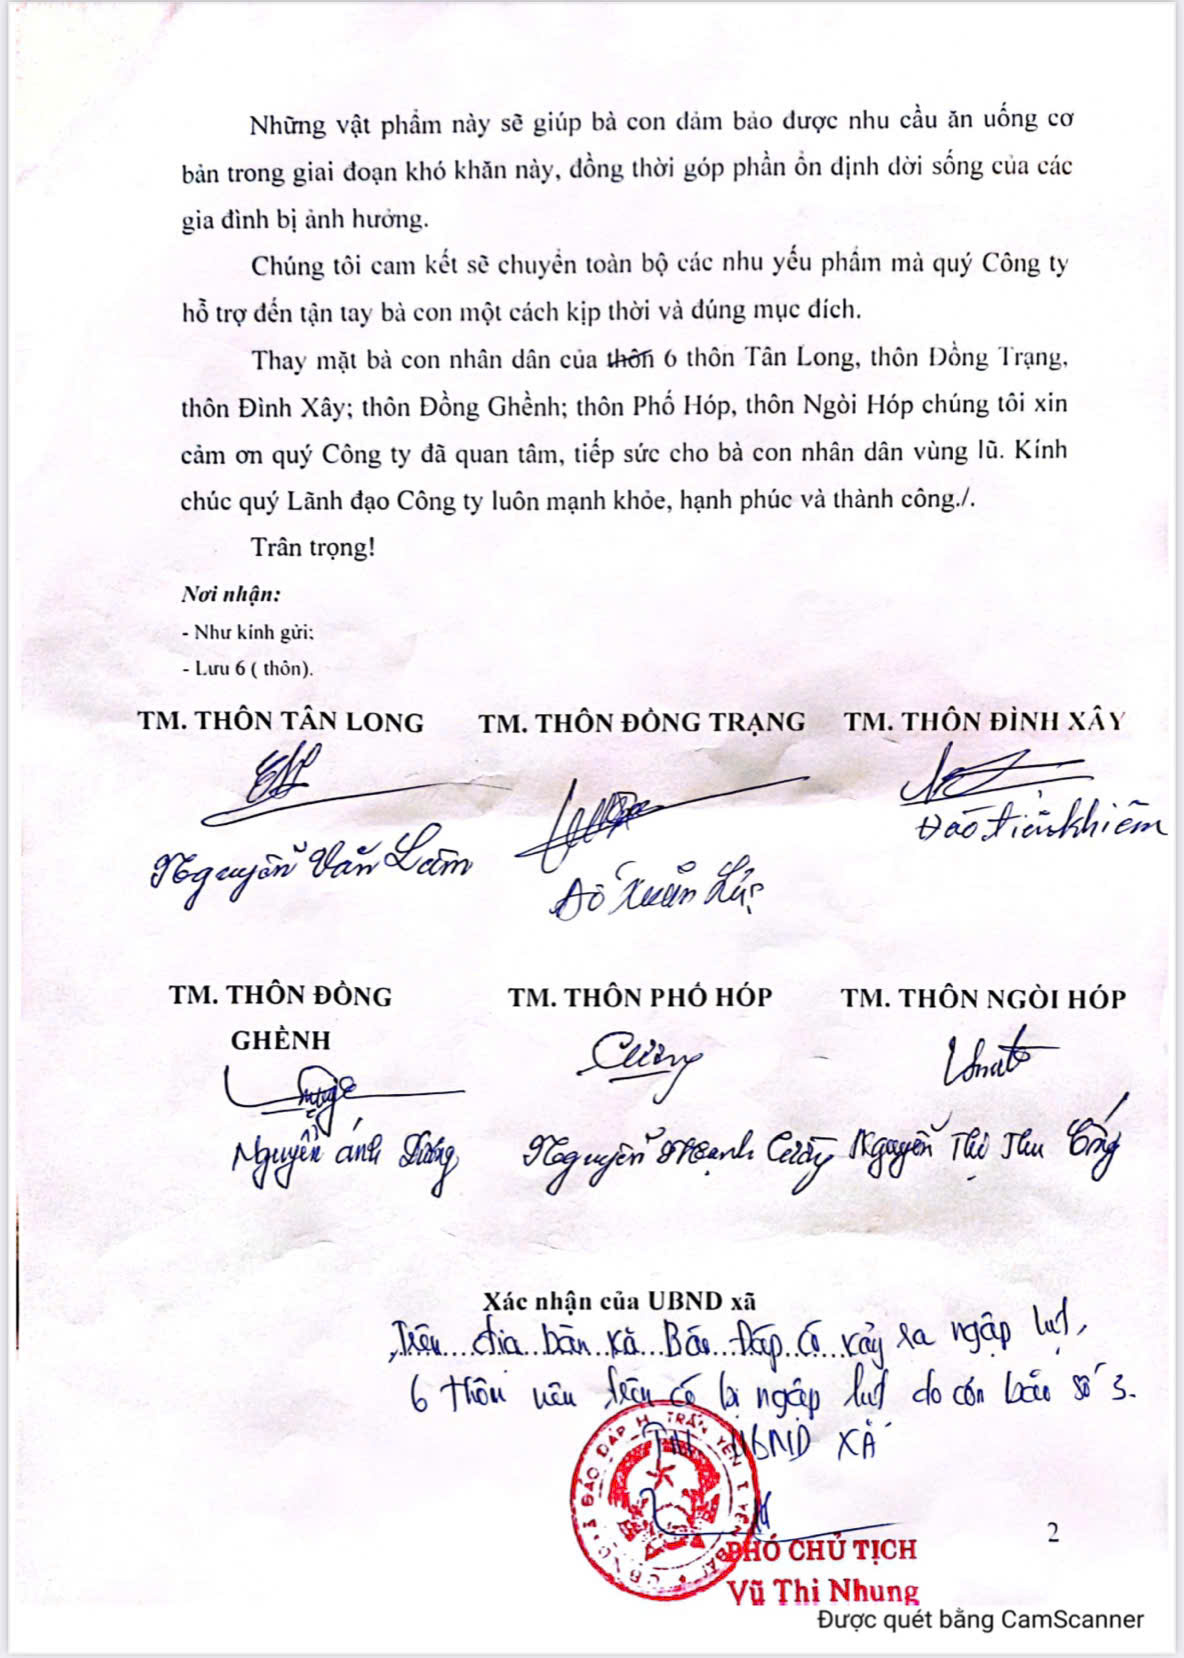 Những vật phẩm này sẽ giúp bà con đảm bảo được nhu cầu ăn uống cơ
bản trong giai đoạn khó khăn này, đồng thời góp phần ổn định đời sống của các
gia đình bị ảnh hưởng.
Chúng tôi cam kết sẽ chuyển toàn bộ các nhu yếu phẩm mà quý Công ty
hỗ trợ đến tận tay bà con một cách kịp thời và đúng mục đích.
Thay mặt bà con nhân dân của thôn 6 thôn Tân Long, thôn Đồng Trạng,
thôn Đình Xây; thôn Đồng Ghềnh; thôn Phố Hóp, thôn Ngòi Hóp chúng tôi xin
cảm ơn quý Công ty đã quan tâm, tiếp sức cho bà con nhân dân vùng lũ. Kính
chúc quý Lãnh đạo Công ty luôn mạnh khỏe, hạnh phúc và thành công./.
Trân trọng!
Nơi nhận:
- Như kính gửi;
- Lưu 6 ( thôn).
TM. THÔN TÂN LONG TM. THÔN ĐỒNG TRẠNG TM. THÔN ĐÌNH XÂY
Nguyễn Văn Lâm Đỗ Xuân Đào Khiêm
TM. THÔN ĐỒNG GHỀNH TM. THÔN PHỐ HÓP TM. THÔN NGÒI HÓP
Nguyễn Ánh Dương Nguyễn Mạnh Cường Nguyễn Thị Thu
Xác nhận của UBND xã
Trên địa bàn xã Báo Đáp có xảy ra ngập lụt,
6 thôn nêu trên có bị ngập lụt do cơn bão số 3.
TM UBND XÃ
U.B.N.D XÃ BÁO ĐÁP H. TRẤN YÊN T. YÊN BÁI
PHÓ CHỦ TỊCH
Vũ Thi Nhung
2
Được quét bằng CamScanner